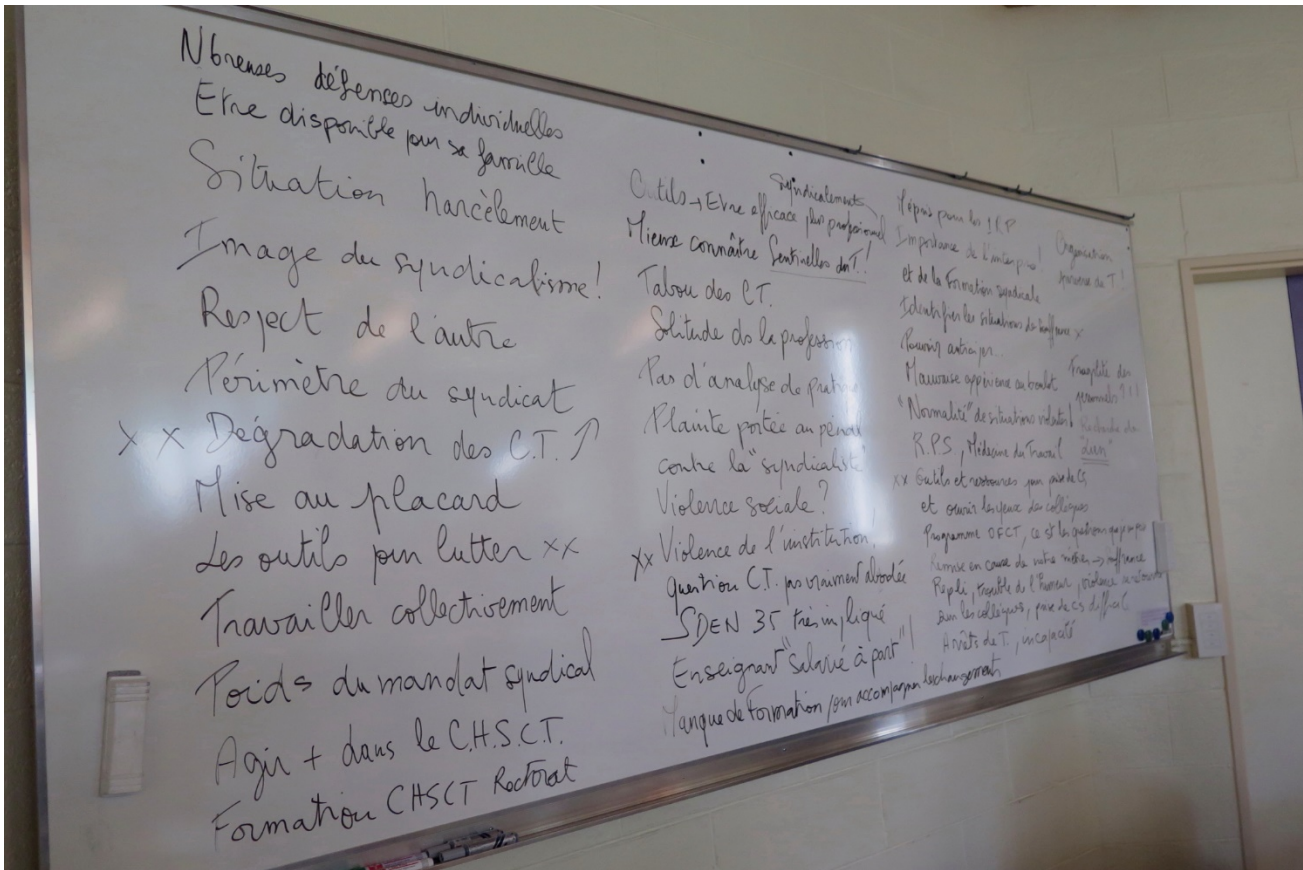 Nbreuses défenses individuelles
Etre disponible pour sa famille
Situation harcèlement
Image du syndicalisme !
Respect de l'autre
Périmètre du syndicat
x x Dégradation des C.T. ↗
Mise au placard
Les outils pour lutter xx
Travailler collectivement
Poids du mandat syndical
Agir + dans le C.H.S.C.T.
Formation CHSCT Rectorat
syndicalement
Outils → Etre efficace plus professionnel
Mieux connaître Sentinelles du T. !
Tabou des CT.
Solitude ds la profession
Pas d'analyse de pratique
Plainte portée au pénal
contre la "syndicaliste"
Violence sociale ?
xx Violence de l'institution !
question C.T. pas vraiment abordée
SDEN 35 très impliqué
Enseignant "salarié à part" !
Manque de Formation pour accompagner les changements
Mépris pour les IRP
Importance de l'interpro !
et de la Formation syndicale
Identifier les situations de souffrance x
Pouvoir
Mauvaise expérience au boulot
"Normalité" de situations violentes !
R.P.S, Médecine du Travail
xx Outils et ressources pour prise de CS
et ouvrir les yeux des collègues
Programme OFCT, ce st les questions que je me pose
Remise en cause de notre métier → souffrance
Repli, trouble de l'humeur, violence
les collègues, prise de cs difficile
Arrêts de T., incapacité
Organisation
du T !
Fragilité des
personnels !!!
Recherche de
"lien"